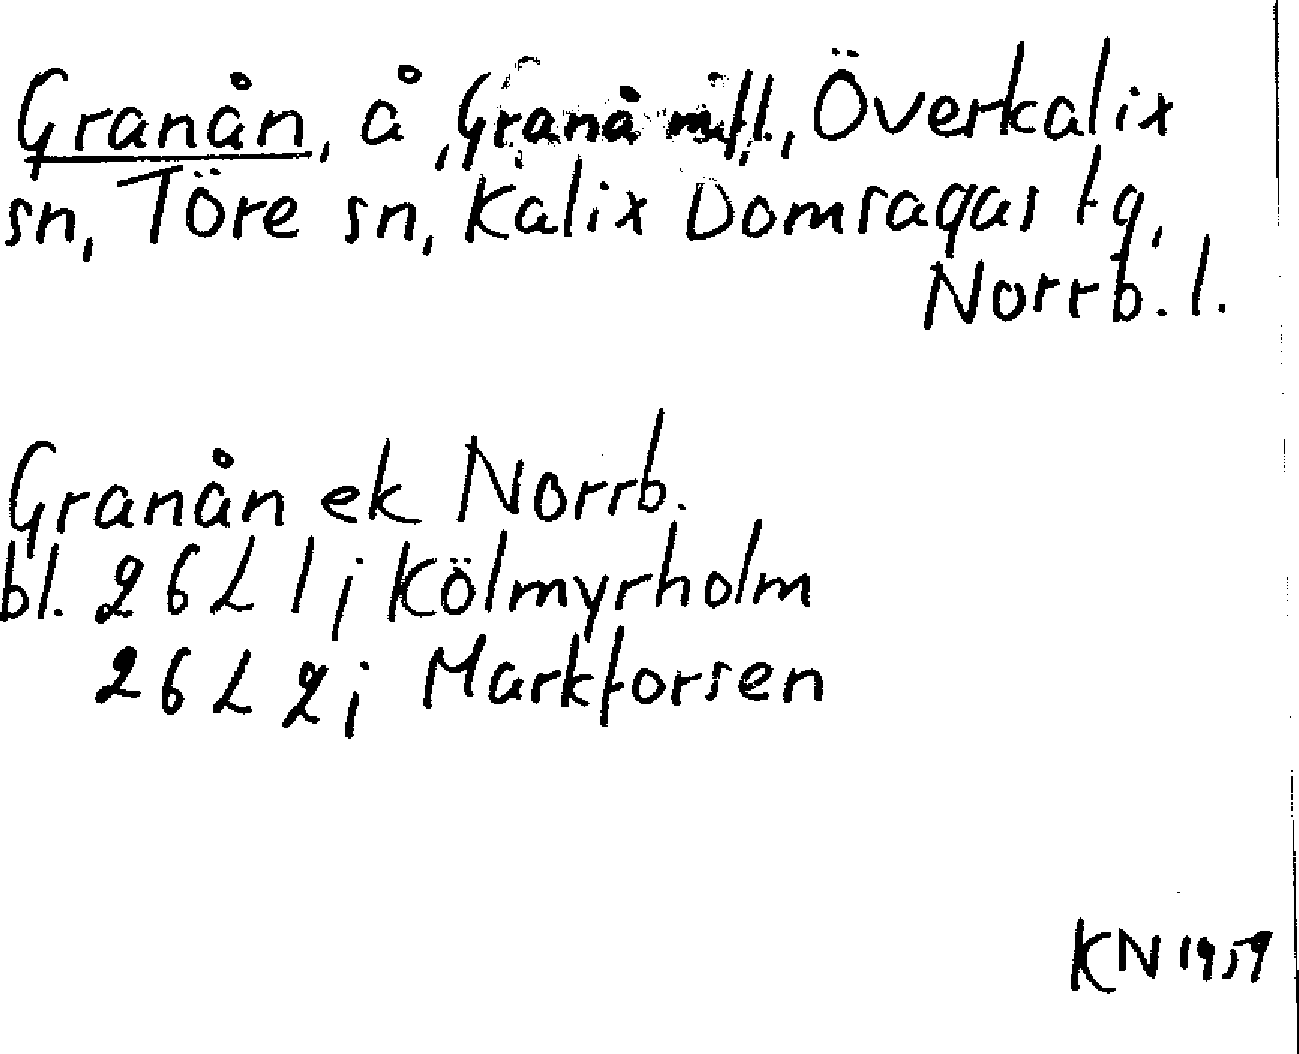 Granån, å, Granå m.fl., Överkalix
sn, Töre sn, Kalix Domsagas tg,
Norrb. l.
Granån ek Norrb.
bl. 26 L 1 j Kölmyrholm
26 L 2 j Markforsen
KN 1959